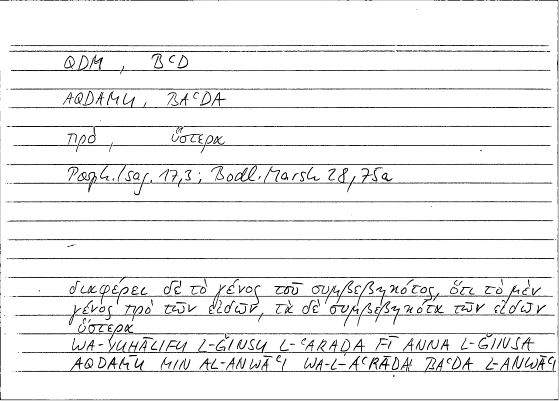 QDM, BᶜD
AQDAMU, BAᶜDA
πρό, ὕστερα
Porph. Isag. 17,3; Bodl. Marsh 28, 75a
–
διαφέρει δὲ τὸ γένος τοῦ συμβεβηκότος, ὅτι τὸ μὲν
γένος πρὸ τῶν εἰδῶν, τὰ δὲ συμβεβηκότα τῶν εἰδῶν
ὕστερα
WA-YUḪĀLIFU L-ǦINSU L-ᶜARADA FĪ ANNA L-ǦINSA
AQDAMU MIN AL-ANWĀᶜI WA-L-AᶜRĀDA BAᶜDA L-ANWĀᶜI